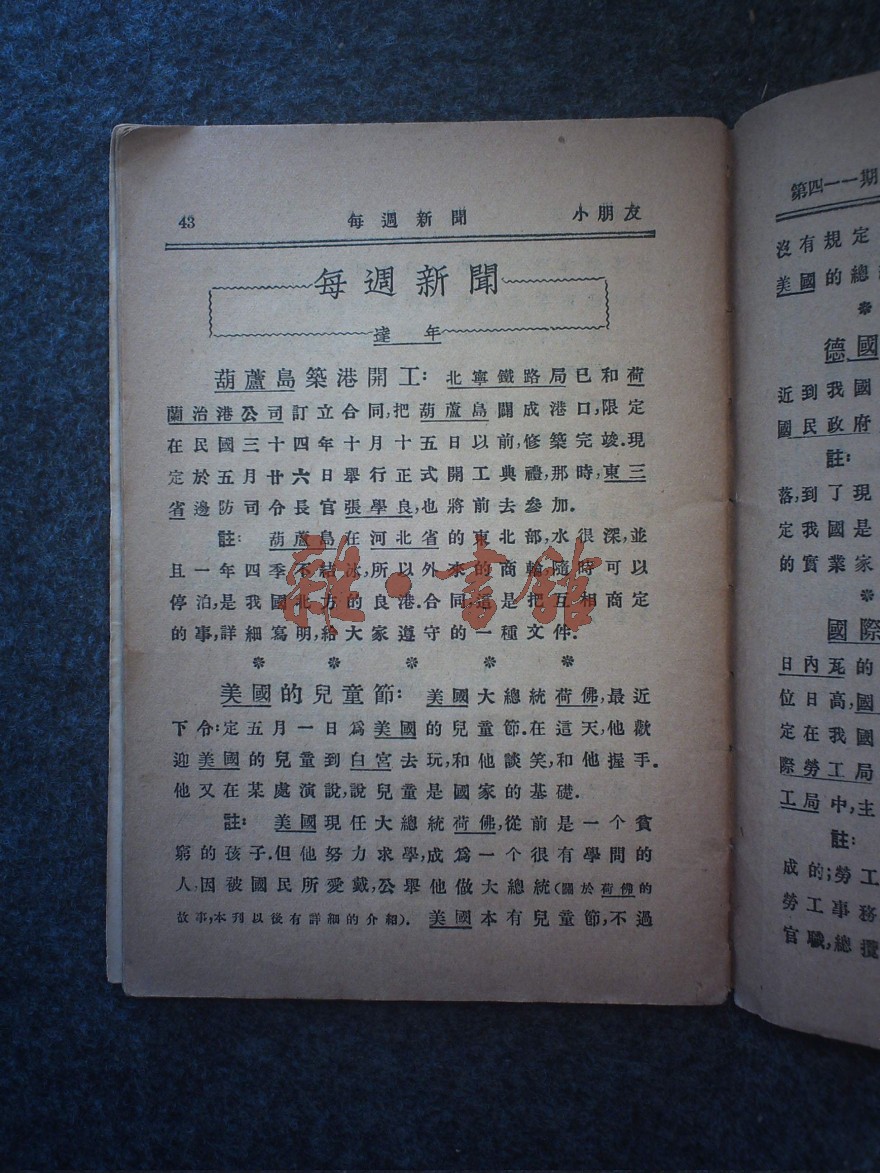 43 每週新聞 小朋友
每週新聞
達年
葫蘆島築港開工：北寧鐵路局已和荷
蘭治港公司訂立合同，把葫蘆島闢成港口，限定
在民國三十四年十月十五日以前，修築完竣．現
定於五月廿六日舉行正式開工典禮，那時，東三
省邊防司令長官張學良，也將前去參加．
註：葫蘆島在河北省的東北部，水很深，並
且一年四季不結冰，所以外來的商輪，隨時可以
停泊，是我國北方的良港．合同，這是把互相商定
的事，詳細寫明，給大家遵守的一種文件．
＊ ＊ ＊ ＊ ＊
美國的兒童節：美國大總統荷佛，最近
下令：定五月一日爲美國的兒童節．在這天，他歡
迎美國的兒童到白宮去玩，和他談笑，和他握手．
他又在某處演說，說兒童是國家的基礎．
註：美國現任大總統荷佛，從前是一个貧
窮的孩子．但他努力求學，成爲一个很有學問的
人，因被國民所愛戴，公舉他做大總統（關於荷佛的
故事，本刊以後有詳細的介紹）．美國本有兒童節，不過
第四一一期
沒有規定
美國的總
＊
德國
近到我國
國民政府
註：
落，到了現
定我國是
的實業家
＊
國際
日內瓦的
位日高，國
定在我國
際勞工局
工局中，主
註：
成的；勞工
勞工事務
官職，總攬
雜·書館